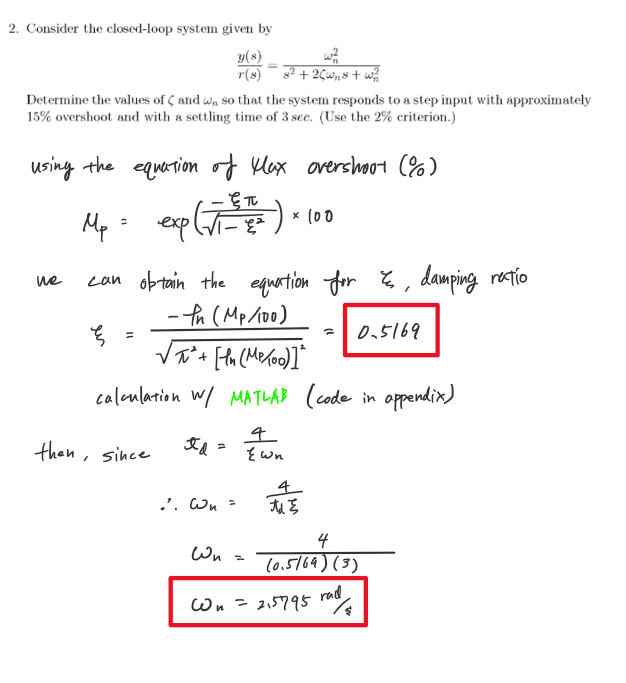 2. Consider the closed-loop system given by
y(s)/r(s) = ωₙ²/(s² + 2ζωₙs + ωₙ²)
Determine the values of ζ and ωₙ so that the system responds to a step input with approximately
15% overshoot and with a settling time of 3 sec. (Use the 2% criterion.)
using the equation of Max overshoot (%)
Mp = exp(-ξπ/√(1-ξ²)) × 100
we can obtain the equation for ξ, damping ratio
ξ = -ln(Mp/100)/√(π² + [ln(Mp/100)]²) = 0.5169
calculation w/ MATLAB (code in appendix)
then, since td = 4/(ξωn)
∴ ωn = 4/(td ξ)
ωn = 4/((0.5169)(3))
ωn = 2.5795 rad/s